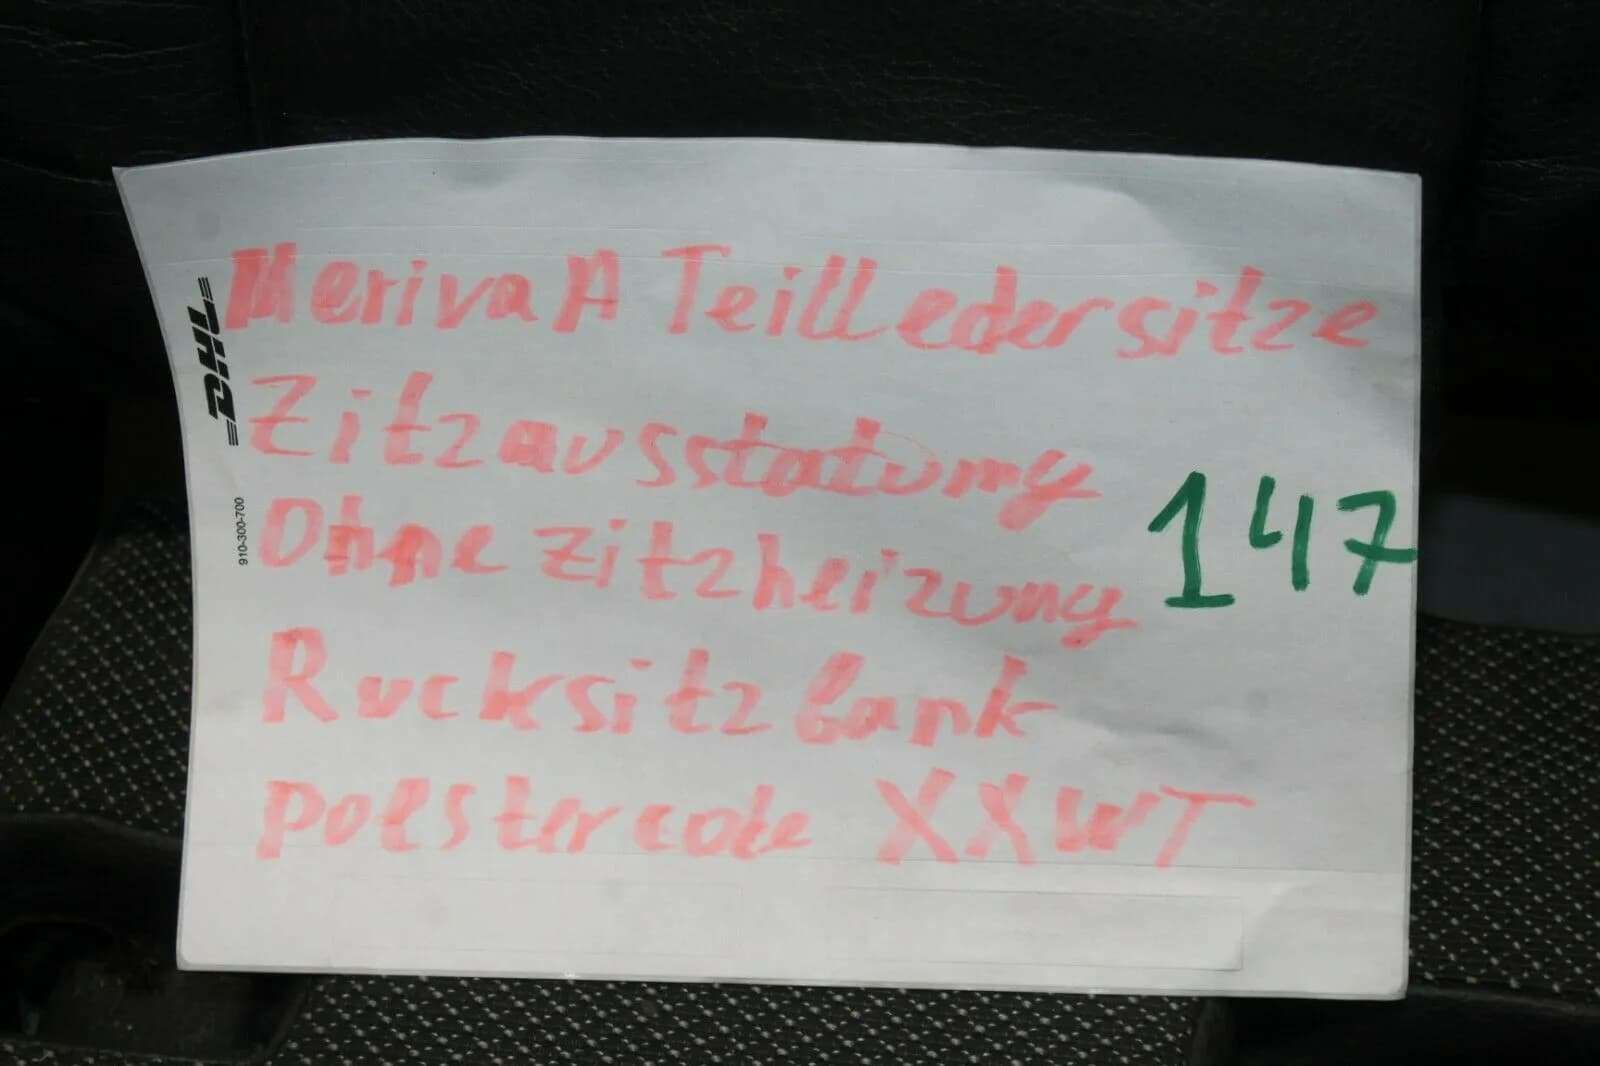 Meriva A Teilledersitze
Zitzausstatung
Ohne zitzheizung
147
Rucksitzbank
polstercode XXWT
DHL
910-300-700